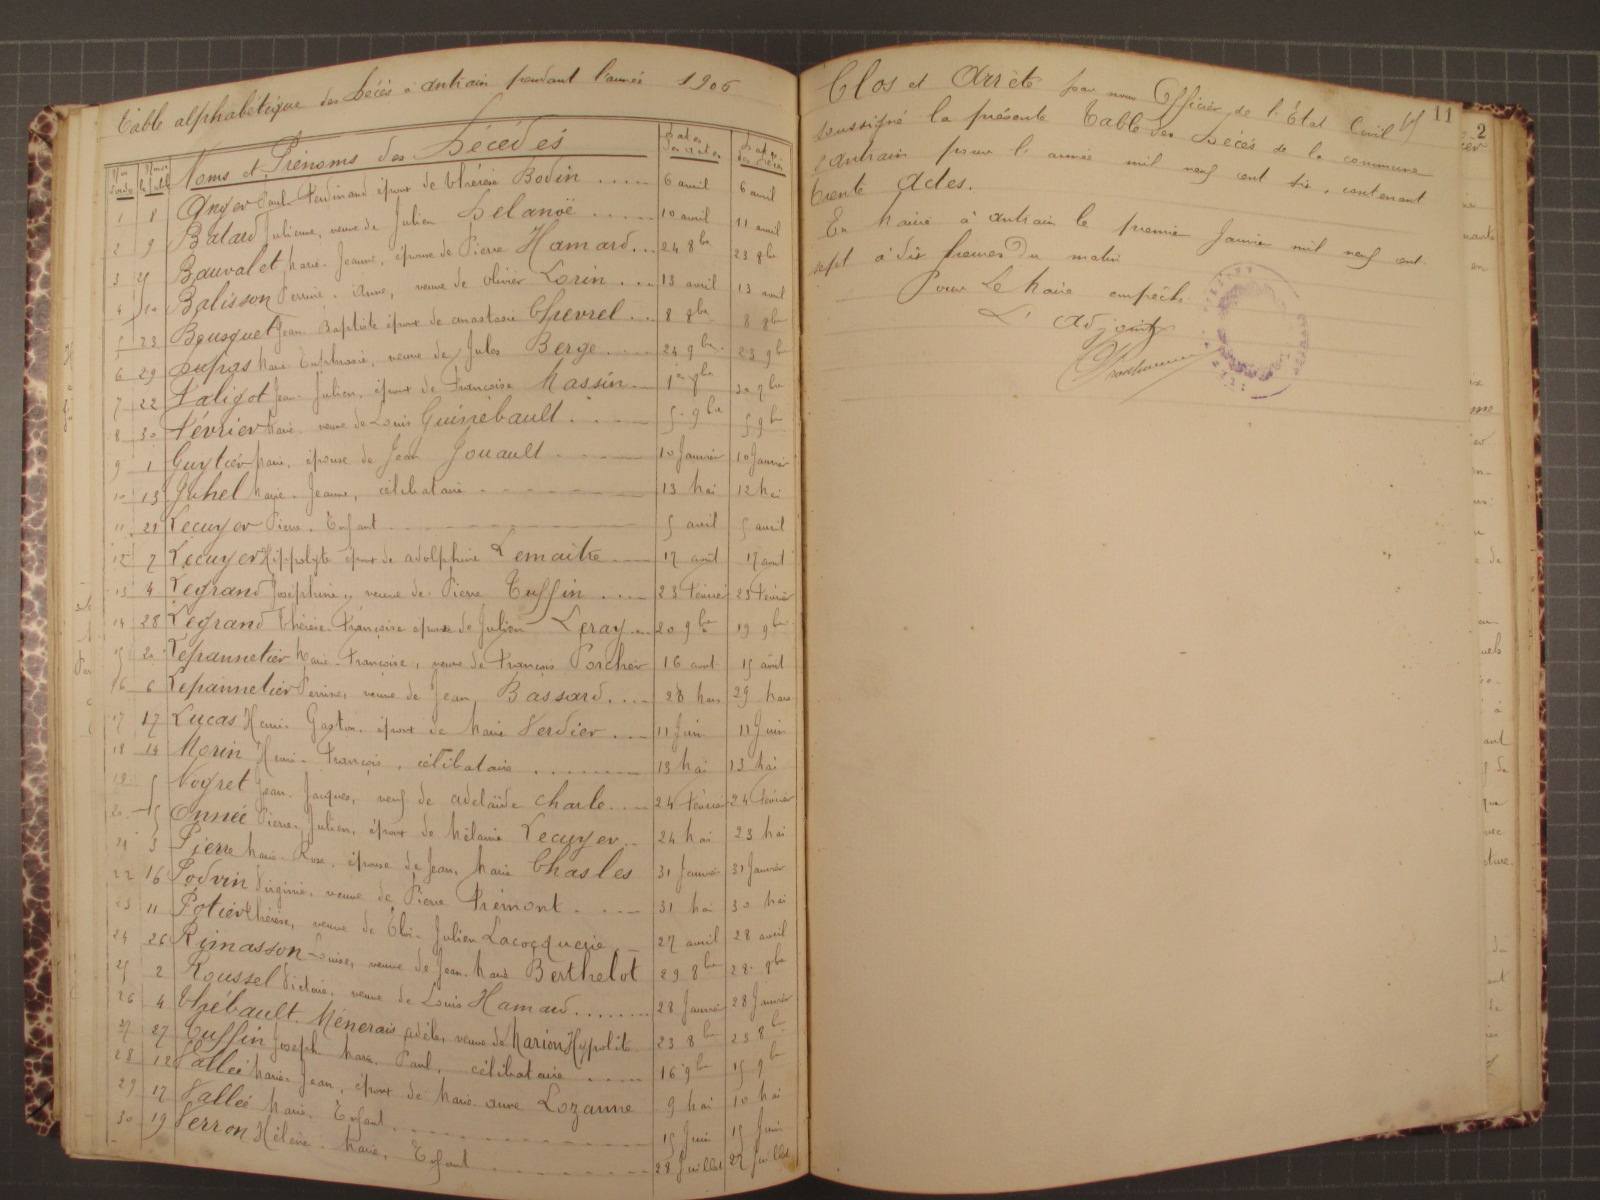 Table alphabétique des Décés à Antrain pendant l'année 1906
Nos d'ordre Nos de la Table Noms et Prénoms des Décédés Dates des actes Dates des Décès
1 8 Anger Paul Ferdinand époux de Thérèse Bodin 6 avril 6 avril
2 9 Batard Julienne, veuve de Julien Delanoë 10 avril 11 avril
3 25 Bauvalet Marie Jeanne, épouse de Pierre Hamard 24 8bre 23 8bre
4 10 Balisson Perrine Anne, veuve de Olivier Lorin 13 avril 13 avril
5 23 Bousquet Jean Baptiste époux de Anastasie Chevrel 8 8bre 8 8bre
6 29 Dupas Marie Euphrasie, veuve de Jules Berge 24 9bre 23 9bre
7 22 Faligot Jean Julien, époux de Françoise Massin 1er 8bre 30 7bre
8 30 Février Marie veuve de Louis Guinebault 5 9bre 5 9bre
9 1 Guytier Marie, épouse de Jean Jouault 10 Janvier 10 Janvier
10 13 Juhel Marie Jeanne, célibataire 13 Mai 12 Mai
11 21 Lecuyer Pierre Enfant 5 avril 5 avril
12 7 Lecuyer Hippolyte époux de Adolphine Lemaitre 17 août 17 août
13 4 Legrand Joséphine, veuve de Pierre Tuffin 23 Février 23 Février
14 28 Legrand Thérèse Françoise épouse de Julien Leray 20 9bre 19 9bre
15 20 Lepannetier Marie Françoise, veuve de François Porcher 16 août 15 août
16 6 Lepannetier Perrine, veuve de Jean Bassard 28 Mars 29 Mars
17 17 Lucas Henri Gaston époux de Marie Verdier 11 Juin 11 Juin
18 14 Morin Henri François, célibataire 13 Mai 13 Mai
19 5 Noyret Jean Jacques, veuf de Adelaïde Charle 24 Février 24 Février
20 15 Onnée Pierre Julien, époux de Mélanie Lecuyer 24 Mai 23 Mai
21 3 Pierre Marie Rose, épouse de Jean Marie Chasles 31 Janvier 31 Janvier
22 16 Podvin Virginie, veuve de Pierre Frémont 31 Mai 30 Mai
23 11 Potier Thérèse, veuve de Eloi Julien Lacocquerie 27 avril 28 avril
24 26 Rimasson Louise, veuve de Jean Marie Berthelot 29 8bre 28 8bre
25 2 Roussel Victoire, veuve de Louis Hamard 28 Janvier 28 Janvier
26 4 Thébault Ménerais Adèle, veuve de Marion Hypolite 23 8bre 23 8bre
27 27 Tuffin Joseph Marie Paul, célibataire 16 9bre 15 9bre
28 12 Vallée Marie Jean, époux de Marie Anne Lozanne 9 Mai 10 Mai
29 17 Vallée Marie Enfant 15 Juin 15 Juin
30 19 Verron Hélène Marie, Enfant 28 Juillet 27 Juillet
11
2
Clos et Arrêté par nous Officier de l'État Civil
soussigné la présente Table des Décés de la commune
d'Antrain pour l'année mil neuf cent six, contenant
trente Actes.
En Mairie à Antrain le premier Janvier mil neuf cent
sept à dix heures du matin
Pour Le Maire empêché
L'Adjoint